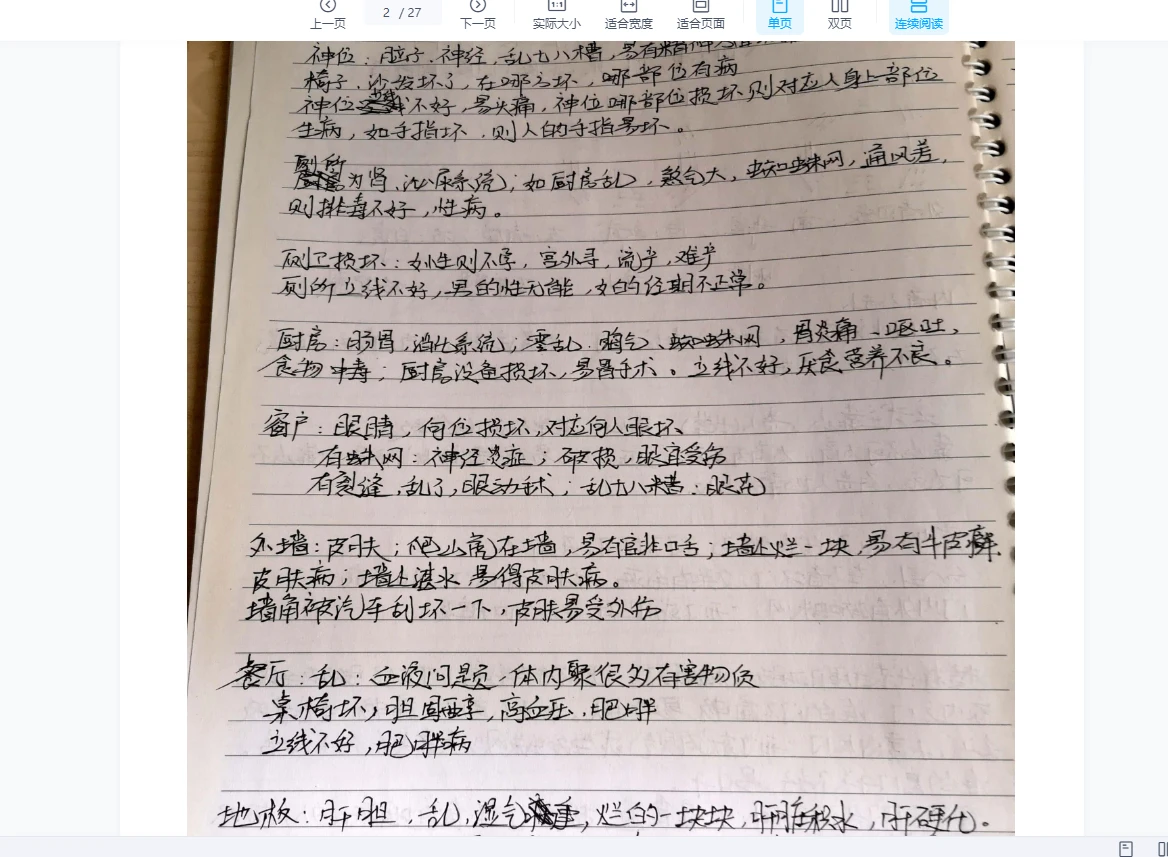 上一页
2 / 27
下一页
1:1
实际大小
适合宽度
适合页面
单页
双页
连续阅读
神位：脑子.神经,乱七八糟,易有精神
椅子.沙发坏了,在哪方坏,哪部位有病
神位 不好,易头痛,神位哪部位损坏则对应人身上部位
生病,如手指坏.则人的手指易坏。
厕所
为肾,泌尿系统;如厨房乱,煞气大,蜘蛛网,通风差,
则排毒不好,性病。
厕卫损坏:女性则不孕,宫外孕,流产,难产
厕所立线不好,男的性无能,女的经期不正常。
厨房:肠胃,消化系统;零乱. 蜘蛛网,胃炎痛、呕吐,
食物中毒;厨房设备损坏,易胃手术。立线不好,厌食营养不良。
窗户:眼睛,何位损坏,对应何人眼坏
有蛛网:神经炎症;破损,眼宜受伤
有裂缝,乱了,眼动手术;乱七八糟:眼花
外墙:皮肤;爬山虎在墙,易有官非口舌;墙外烂一块,易有牛皮癣.
皮肤病;墙上湿水,易得皮肤病。
墙角被汽车刮坏一下,皮肤易受外伤
餐厅:乱:血液问题,体内聚很多有害物质
桌椅坏,胆固醇,高血压,肥胖
立线不好,肥胖病
地板:肝胆,乱,湿气 重,烂的一块块,肝脏积水,肝硬化。